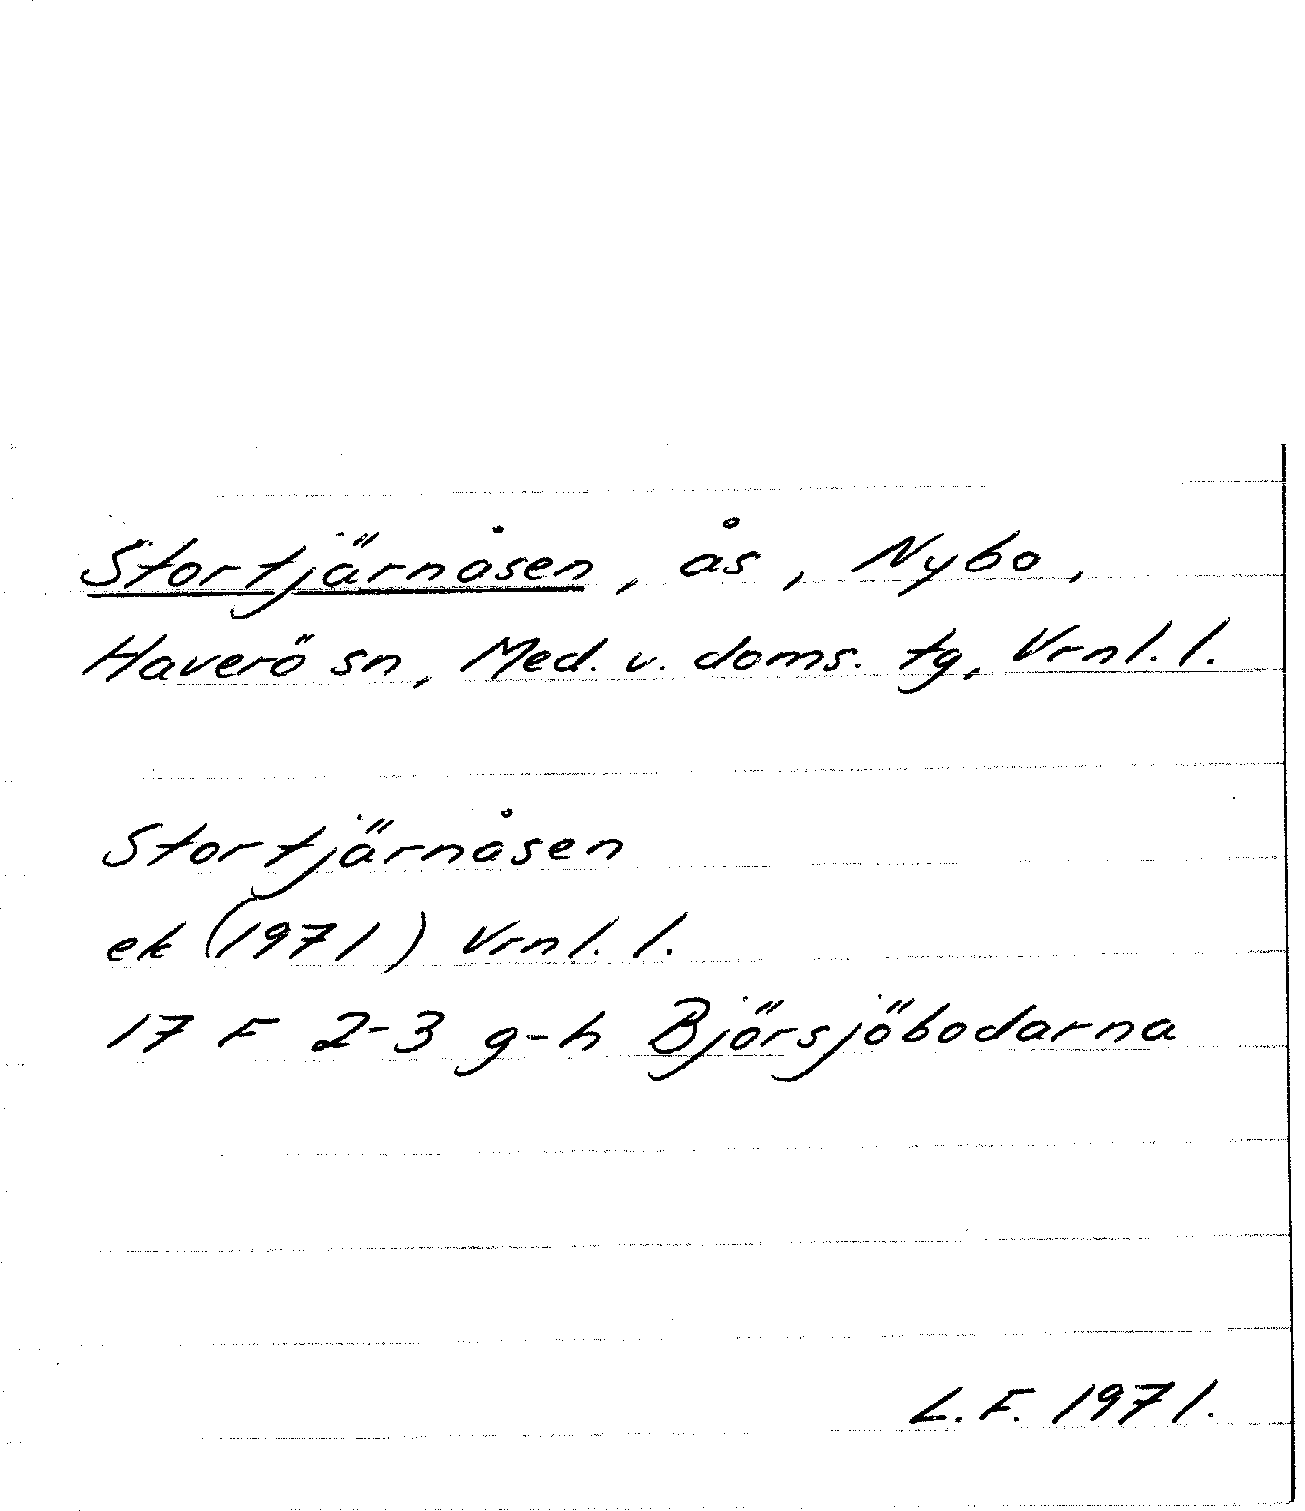 Stortjärnåsen, ås, Nybo,
Haverö sn, Med. v. doms. tg, Vrnl. l.
Stortjärnåsen
ek (1971) Vrnl. l.
17 F 2-3 g-h Björsjöbodarna
L. F. 1971.